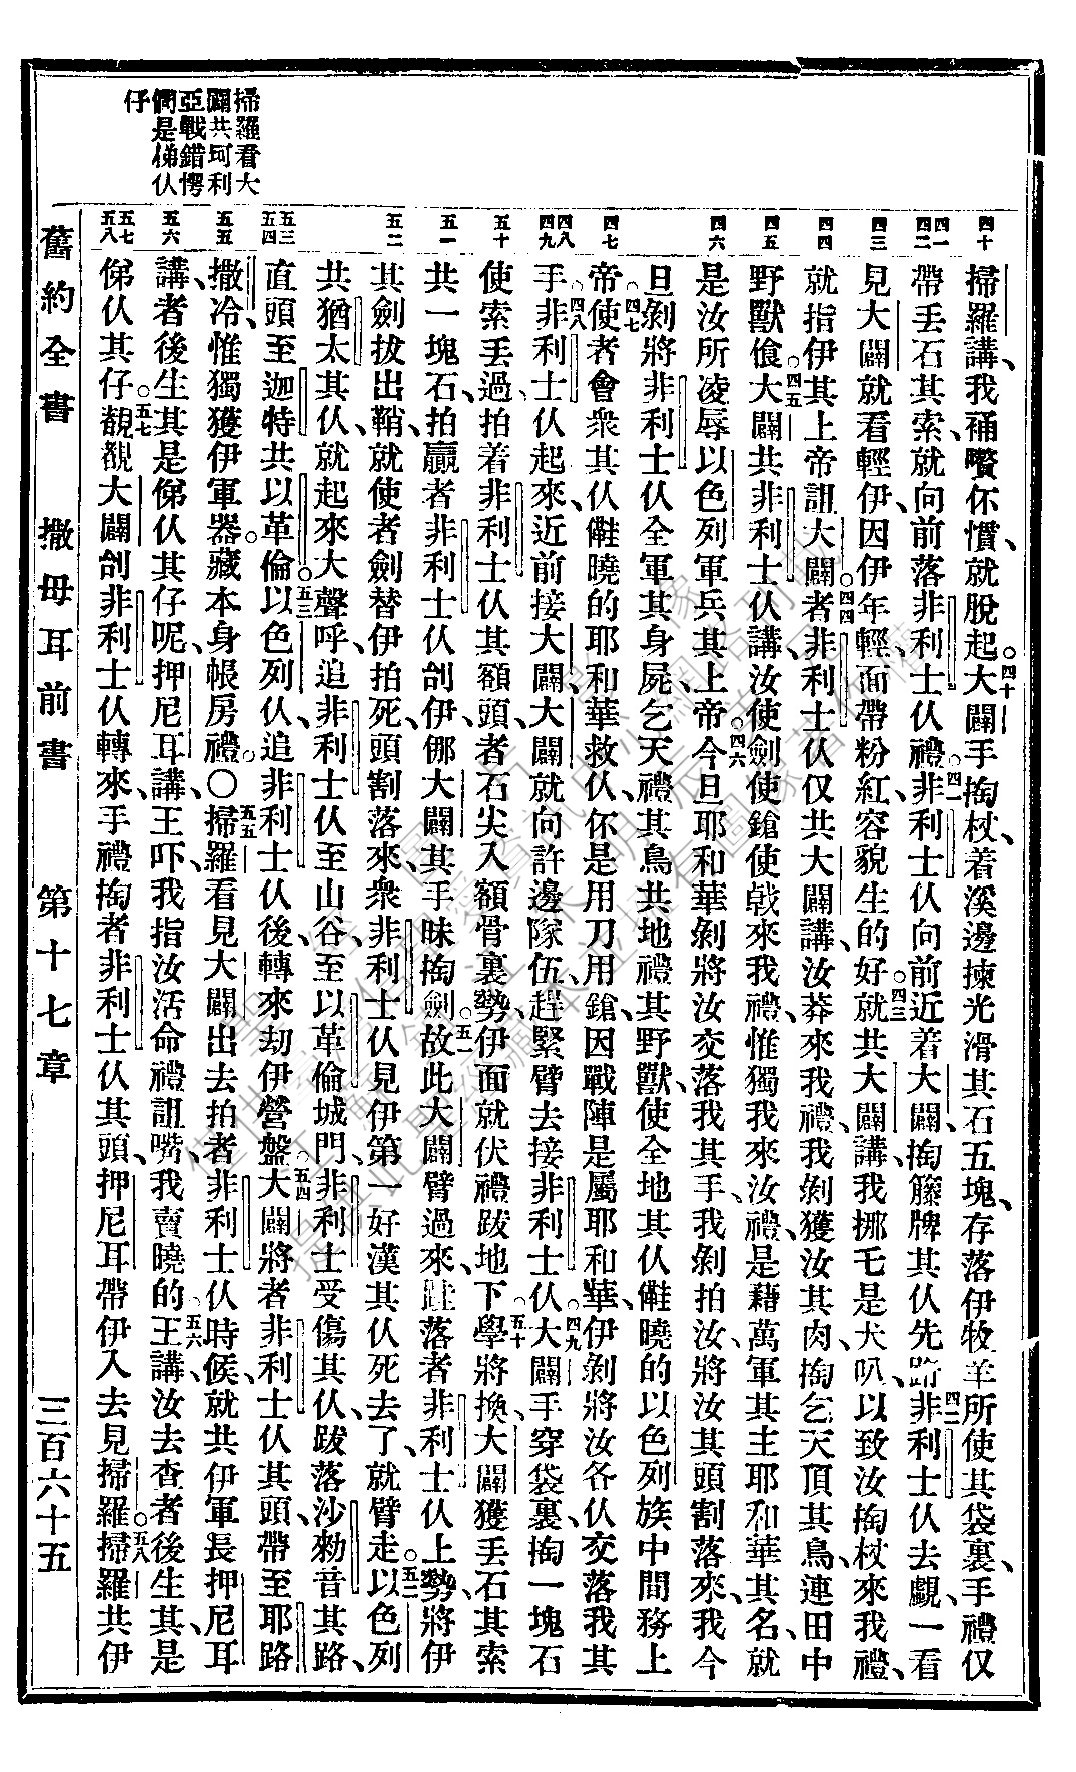 掃羅看大
闢共坷利
亞戰錯愕
問是悌仸
仔
四十
四一
四二
四三
四四
四五
四六
四七
四八
四九
五十
五一
五二
五三
五四
五五
五六
五七
五八
掃羅講、我𥙷嚽伓慣、就脫起。四十大闢手掏杖、着溪邊揀光滑其石五塊、存落伊牧羊所使其袋裏、手禮仅
帶丢石其索、就向前落非利士仸禮。四一非利士仸向前近着大闢、掏籐牌其仸先蹄。四二非利士仸去覷一看
見大闢就看輕伊、因伊年輕、面帶粉紅、容貌生的好。四三就共大闢講、我挪乇是犬叭、以致汝掏杖來我禮、
就指伊其上帝詛大闢。四四者非利士仸仅共大闢講、汝莽來我禮、我剝獲汝其肉、掏乞天頂其鳥、連田中
野獸飡。四五大闢共非利士仸講、汝使劍使鎗使戟來我禮、惟獨我來汝禮、是藉萬軍其主耶和華其名、就
是汝所凌辱以色列軍兵其上帝。四六今旦耶和華剝將汝交落我其手、我剝拍汝、將汝其頭割落來、我今
旦剝將非利士仸全軍其身屍、乞天禮其鳥共地禮其野獸、使全地其仸儺曉的以色列族中間務上
帝。四七使者會衆其仸儺曉的耶和華救仸伓是用刀用鎗、因戰陣是屬耶和華、伊剝將汝各仸交落我其
手。四八非利士仸起來、近前接大闢、大闢就向許邊隊伍、趕緊臂去接非利士仸。四九大闢手穿袋裏、掏一塊石
使索丢過、拍着非利士仸其額頭、者石尖入額骨裏勢、伊面就伏禮跋地下。五十學將換、大闢獲丢石其索
共一塊石、拍贏者非利士仸刣伊、㑚大闢其手昧掏劍。五一故此大闢臂過來、跬落者非利士仸上勢、將伊
其劍拔出鞘、就使者劍替伊拍死、頭割落來、衆非利士仸見伊第一好漢其仸死去了、就臂走。五二以色列
共猶太其仸就起來大聲呼、追非利士仸至山谷、至以革倫城門、非利士受傷其仸、跋落沙勑音其路、
直頭至迦特共以革倫。五三以色列仸、追非利士仸後、轉來劫伊營盤。五四大闢將者非利士仸其頭、帶至耶路
撒冷、惟獨獲伊軍器藏本身帳房禮。〇五五掃羅看見大闢出去拍者非利士仸時候、就共伊軍長押尼耳
講、者後生其是俤仸其仔呢、押尼耳講、王吓、我指汝活命禮詛嘴、我賣曉的。五六王講、汝去查者後生其是
俤仸其仔。五七覩覩大闢刣非利士仸轉來、手禮掏者非利士仸其頭、押尼耳帶伊入去見掃羅。五八掃羅共伊
舊約全書　撒母耳前書　第十七章　三百六十五